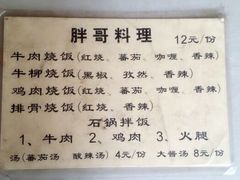 胖哥料理 12元/份
牛肉烧饭(红烧、蕃茄、咖喱、香辣)
牛柳烧饭(黑椒、孜然、香辣)
鸡肉烧饭(红烧、蕃茄、咖喱、香辣)
排骨烧饭(红烧、香辣)
石锅拌饭
1、牛肉 2、鸡肉 3、火腿
汤(蕃茄汤 酸辣汤) 4元/份 大酱汤 8元/份